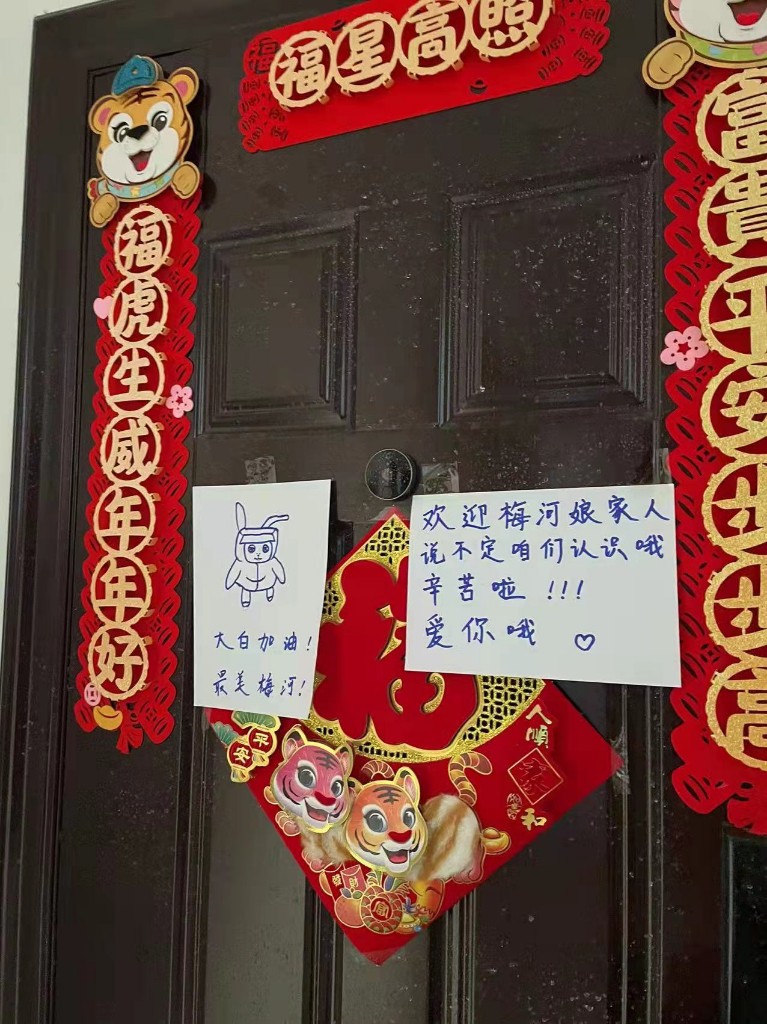 福星高照
福虎生威年年好
富貴平安步步高
大白加油！
最美梅河！
欢迎梅河娘家人
说不定咱们认识哦
辛苦啦！！！
爱你哦 ♡
平安
人順
家和
富